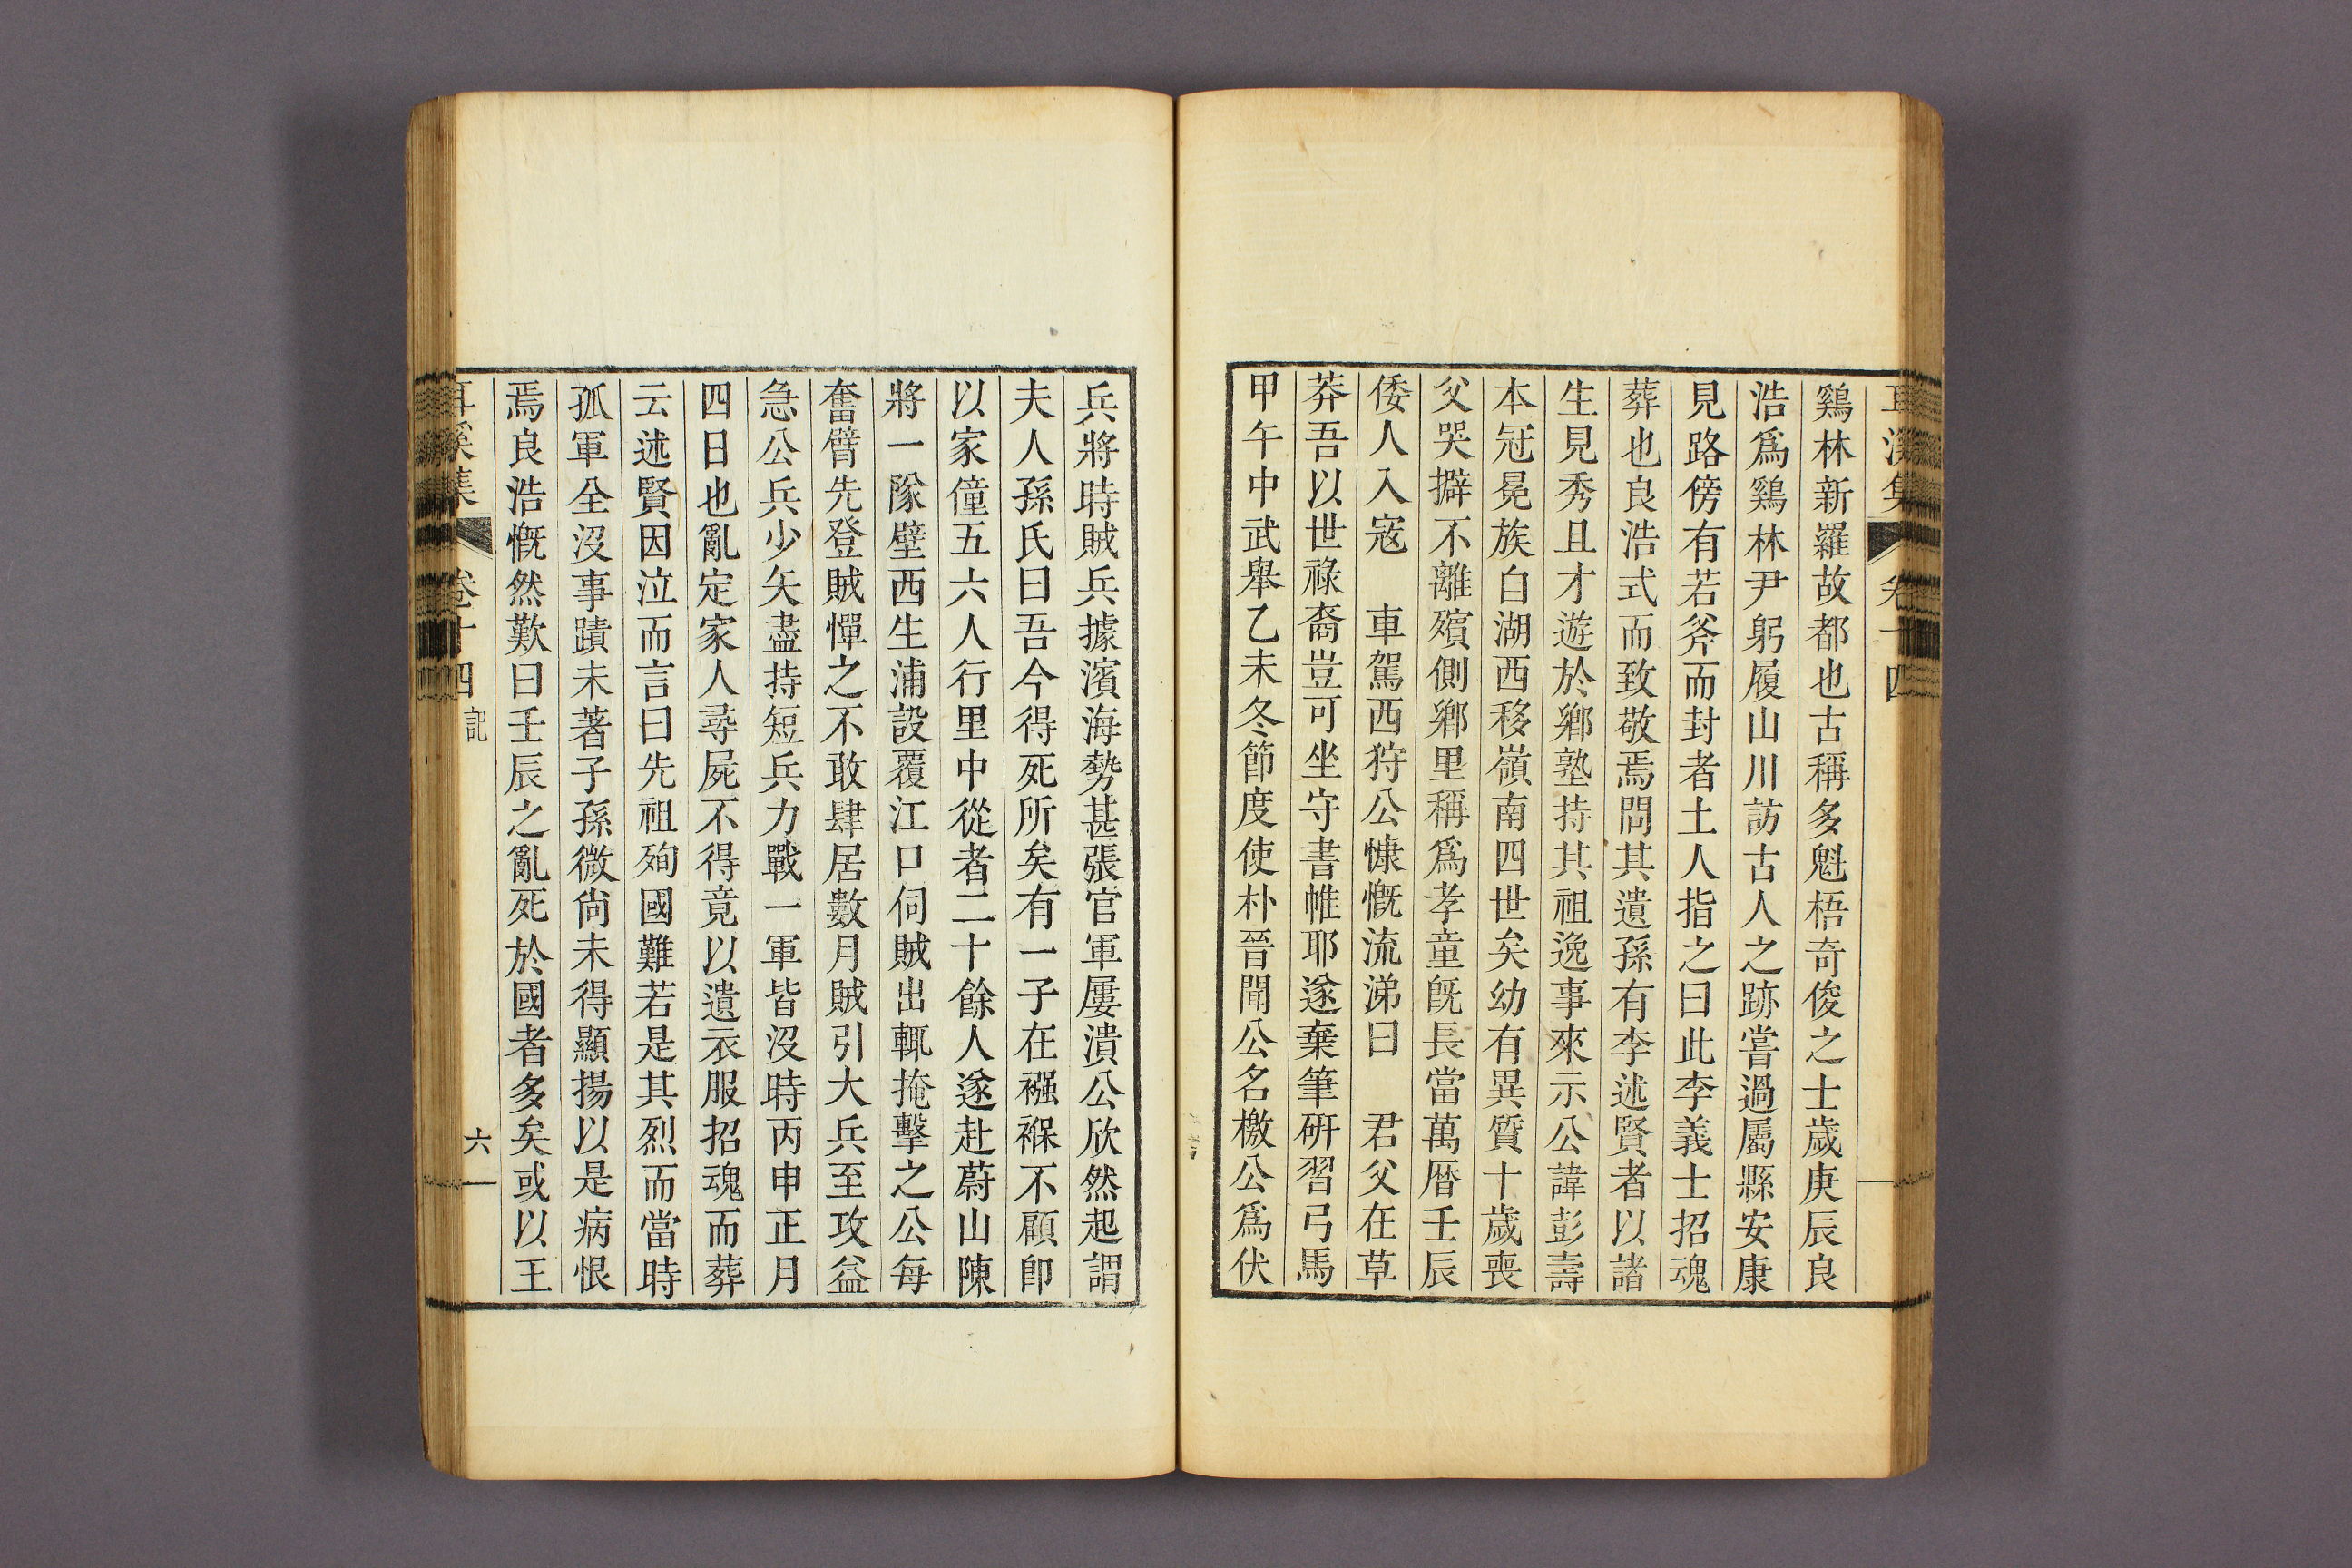 耳溪集 卷十四
鷄林新羅故都也古稱多魁梧奇俊之士歲庚辰良
浩爲鷄林尹躬履山川訪古人之跡嘗過屬縣安康
見路傍有若斧而封者土人指之曰此李義士招魂
葬也良浩式而致敬焉問其遺孫有李述賢者以諸
生見秀且才遊於鄉塾持其祖逸事來示公諱彭壽
本冠冕族自湖西移嶺南四世矣幼有異質十歲喪
父哭擗不離殯側鄉里稱爲孝童旣長當萬曆壬辰
倭人入寇 車駕西狩公慷慨流涕曰 君父在草
莽吾以世祿裔豈可坐守書帷耶遂棄筆硏習弓馬
甲午中武舉乙未冬節度使朴晉聞公名檄公爲伏
兵將時賊兵據濱海勢甚張官軍屢潰公欣然起謂
夫人孫氏曰吾今得死所矣有一子在襁褓不顧卽
以家僮五六人行里中從者二十餘人遂赴蔚山陳
將一隊壁西生浦設覆江口伺賊出輒掩擊之公每
奮臂先登賊憚之不敢肆居數月賊引大兵至攻益
急公兵少矢盡持短兵力戰一軍皆沒時丙申正月
四日也亂定家人尋屍不得竟以遺衣服招魂而葬
云述賢因泣而言曰先祖殉國難若是其烈而當時
孤軍全沒事蹟未著子孫微尙未得顯揚以是病恨
焉良浩慨然歎曰壬辰之亂死於國者多矣或以王
耳溪集 卷十四 記 六